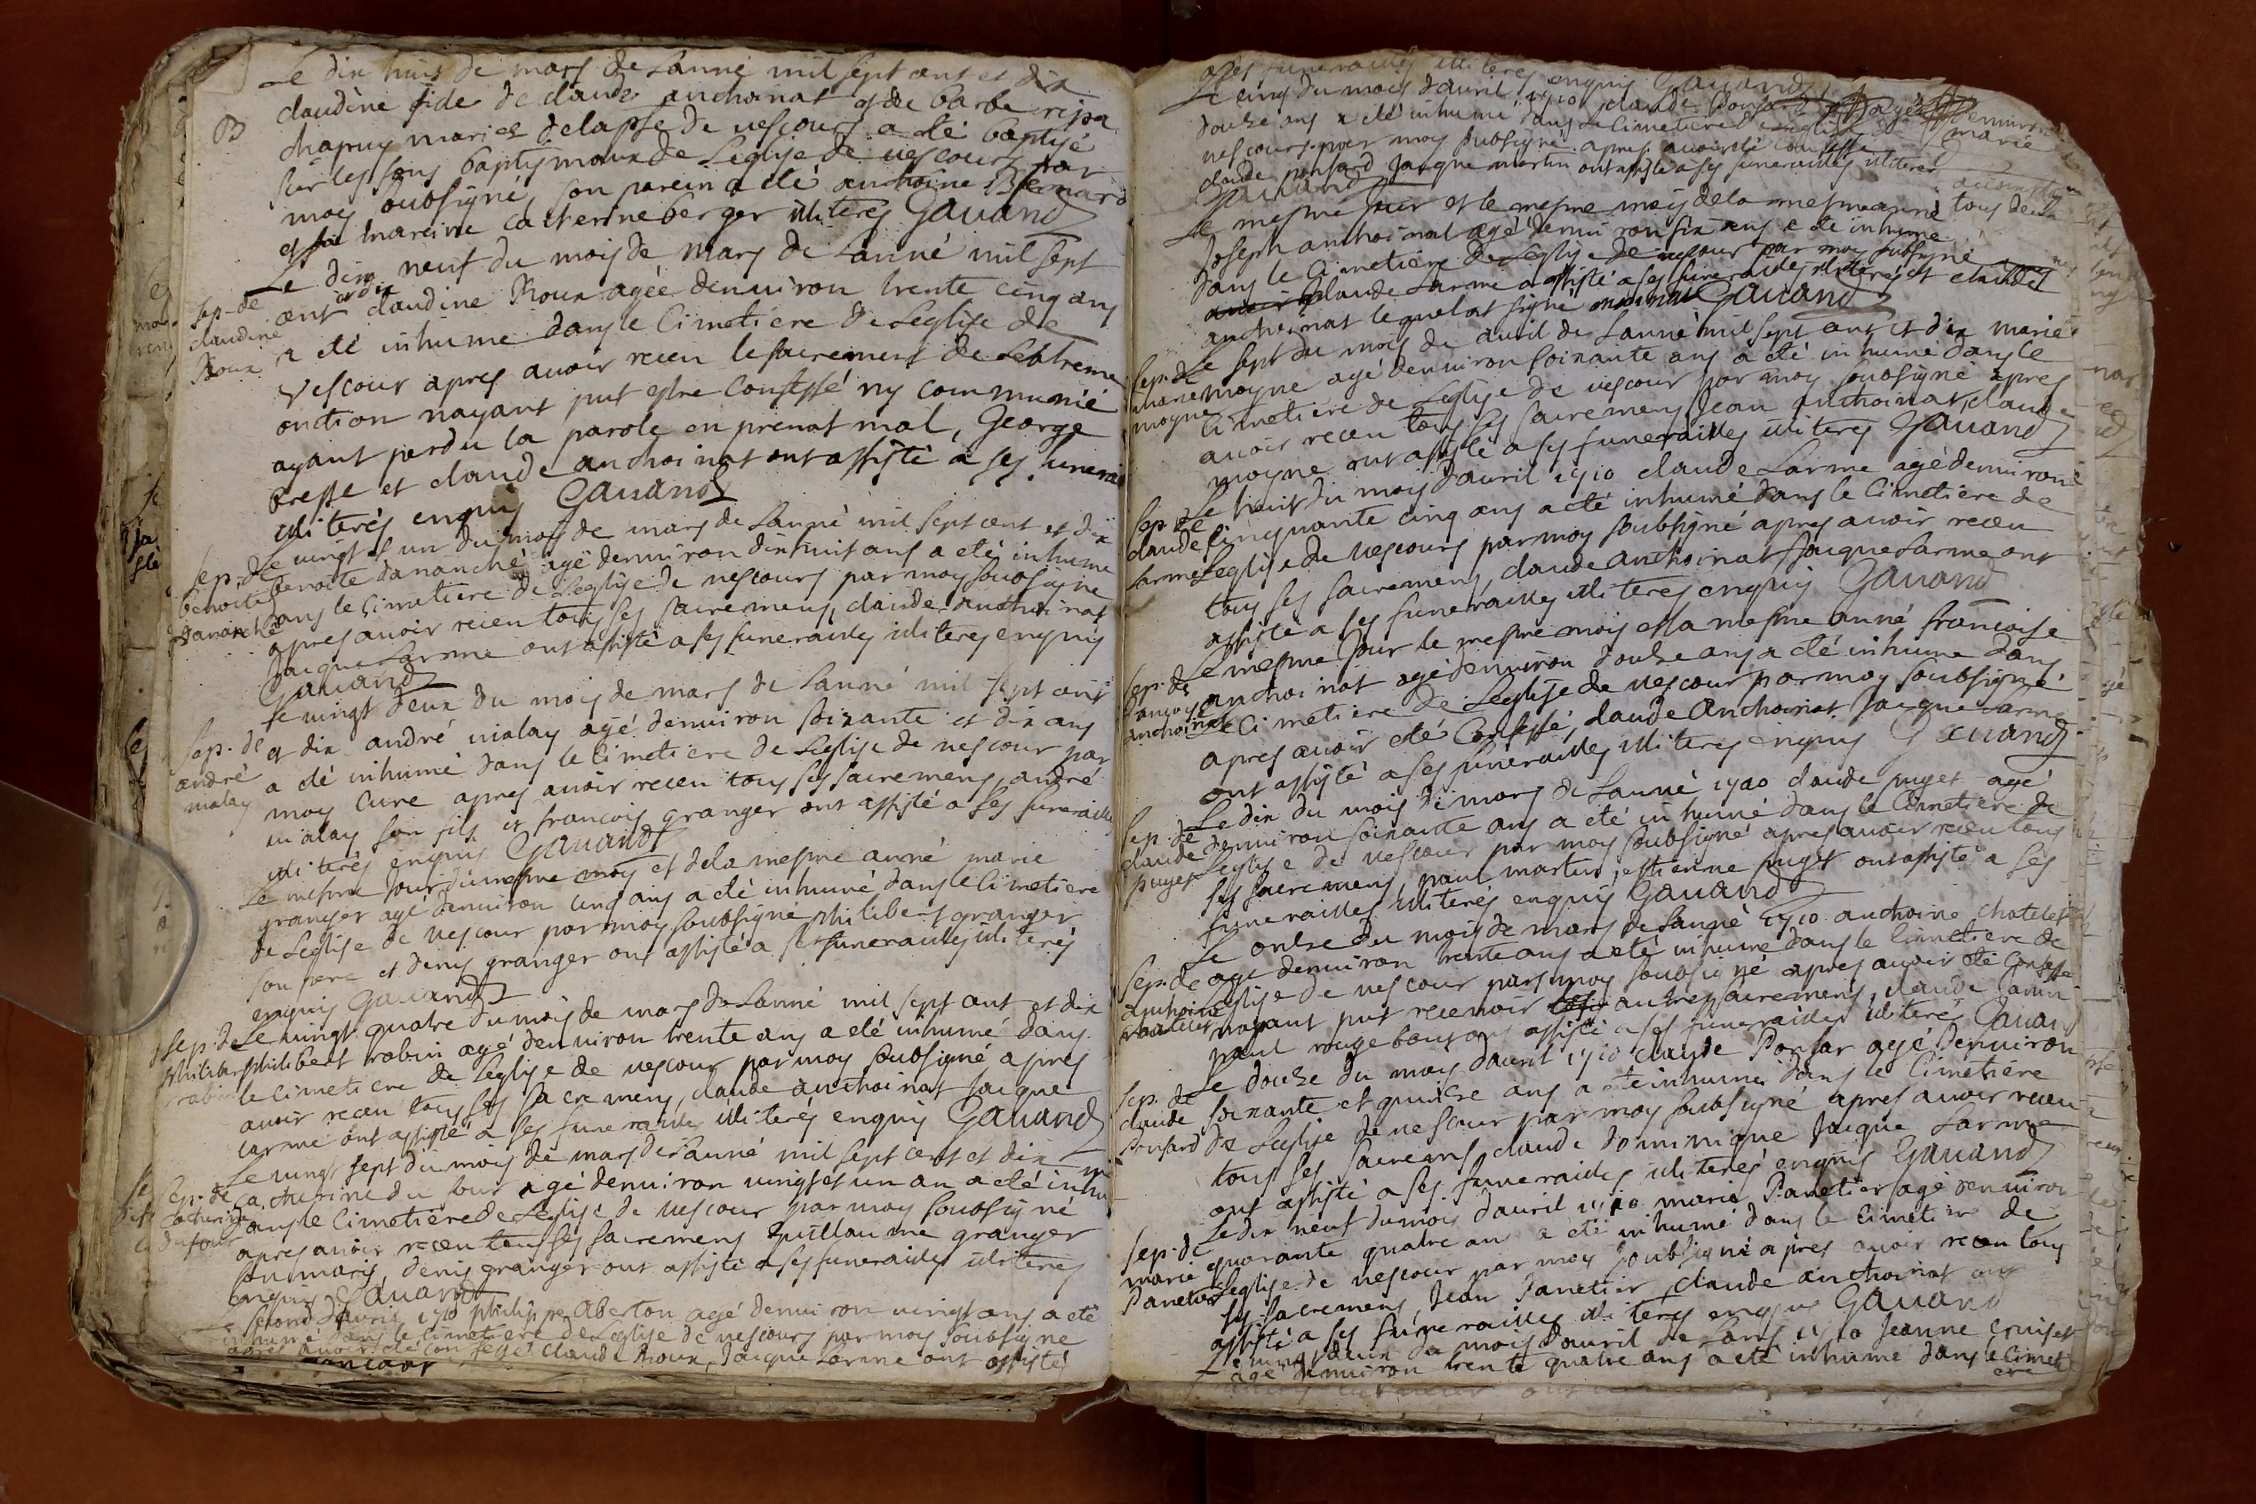 Le dix huit de mars de Lanné mil sept cent et dix
B
claudine fide de claude anchoinat et de barbe
chapuy mariés de la psse de vescours a eté baptisé
sur les fons baptismaux de Leglise de vescours par
moy soubsigné, son parein a eté anthoine
et sa mareine catherine berger illiteres Gavand
Le dix neuf du mois de mars de Lanné mil sept
Sep. de claudine Roux
cent et dix claudine Roux agée denuiron trente cinq ans
a eté inhume dans le Cimetiere de Leglise de
Vescour apres auoir receu le sacrement de Lextreme
onction nayant put estre Confessé ny communié
ayant perdu la parole en prenat mal, George
bresse et claude anchoinat ont assisté a ses funerai
illiterés enquis Gavand
Le vingt et un du mois de mars de Lanné mil sept cent et dix
Sep. de benoite dananché
benoite dananché agé denuiron dix huit ans a eté inhume
dans le Cimetiere de Leglise de vescours par moy soubsigne
apres auoir receu tous ses sacremens, claude anchoinat
Jacque Larme ont assisté a ses funerailles illiteres enquis
Gavand
Le vingt deux du mois de mars de Lanné mil sept cent
Sep. de andré malay
et dix andré malay agé denuiron soixante et dix ans
a eté inhumé dans le Cimetiere de Leglise de vescour par
moy Curé apres auoir receu tous ses sacremens, andré
malay son fils et francois granger ont assisté a ses funerailles
illiterés enquis Gavand
Le mesme Jour du mesme moy et dela mesme anné marie
granger agé denuiron cinq ans a eté inhumé dans le Cimetiere
de Leglise de vescour par moy soubsigné philibert granger
son pere et denis granger ont assisté a ses funerailles illiterés
enquis Gavand
Sep. de philibert robin
Le vingt quatre du mois de mars de Lanné mil sept cent et dix
philibert robin agé denuiron trente ans a eté inhumé dans
le Cimetiere de Leglise de vescour par moy soubsigné apres
auoir receu tous ses sacremens, claude anchoinat Jacque
Larme ont assisté a ses funerailles illiterés enquis Gavand
Le vingt sept du mois de mars de Lanné mil sept cent et dix
Sep. de catherine du four
catherine du four agé denuiron vingt et un an a eté inhu
dans le Cimetiere de Leglise de vescour par moy soubsigné
apres auoir receu tous ses sacremens guillaume granger
son maris, denis granger ont assisté a ses funerailles illiteres
enquis Gavand
Le second dauril 1710 philippe Aberton agé denuiron vingt ans a eté
inhumé dans le Cimetiere de Leglise de vescours par moy soubsigne
apres auoir eté confessé claude Roux, Jacque Larme ont assistés
a ses funerailles illiteres enquis Gavand
Le cinq du mois dauril 1710 claude ponsard agé denuiron
douze ans a eté inhumé dans le Cimetiere de Leglise
vescours par moy soubsigné apres auoir eté confessé
claude ponsard Jacque martin ont assisté a ses funerailles illiteres
Gavand
Le mesme Jour et le mesme mois de la mesme anné
Joseph anchoinat agé denuiron six ans a eté inhume
dans le Cimetiere de Leglise de vescour par moy soubsigné
claude Larme a assisté a ses funerailles illiterés et claude
anchoinat lequel at signé Gavand
Le sept du mois de auril de Lanné mil sept cent et dix marie
Sep. de marie moyne
moyne agé denuiron soixante ans a eté inhumé dans le
Cimetiere de Leglise de vescour par moy soubsigné apres
auoir receu tous ses sacremens Jean anchoinat, claude
moyne ont assisté a ses funerailles illiteres Gavand
Le huit du moy dauril 1710 claude Larme agé denuiron
Sep. de claude Larme
Cinquante cinq ans a eté inhumé dans le Cimetiere de
Leglise de vescours par moy soubsigné apres auoir receu
tous ses sacremens, claude anchoinat Jacque Larme ont
assisté a ses funerailles illiteres enquis Gavand
Le mesme Jour le mesme mois et la mesme anné francoise
Sep. de francoise anchoinat
anchoinat agé denuiron douze ans a eté inhume dans
le Cimetiere de Leglise de vescour par moy soubsigné
apres auoir eté Confessé, claude Anchoinat Jacque Larme
ont assisté a ses funerailles illiteres enquis Gavand
Le dix du mois de mars de Lanné 1710 claude puget agé
Sep. de claude puget
denuiron soixante ans a eté inhumé dans le Cimetiere de
Leglise de vescour par moy soubsigné apres auoir receu tous
ses sacremens, paul martin, estienne puget ont assisté a ses
funerailles illiterés enquis Gavand
Le onze du mois de mars de Lanné 1710 anthoine chatelet
Sep. de anthoine chatelet
agé denuiron trente ans a eté inhumé dans le Cimetiere de
Leglise de vescour par moy soubsigné apres auoir eté Confessé
nayant put receuoir autres sacremens, claude
paul ont assisté a ses funerailles illiterés Gavand
Le douze du moy dauril 1710 claude Ponsar agé denuiron
Sep. de claude ponsard
soixante et quinze ans a eté inhumé dans le Cimetiere
de Leglise de vescour par moy soubsigné apres auoir receu
tous ses sacremens, claude dominique Jacque Larme
ont assisté a ses funerailles illiterés enquis Gavand
Le dix neuf du mois dauril 1710 marie Panetier agé denuiron
Sep. de marie Panetier
quarante quatre ans a eté inhumé dans le Cimetiere de
Leglise de vescour par moy soubsigné apres auoir receu tous
ses sacremens, Jean Panetier, claude anchoinat ont
assisté a ses funerailles illiterés enquis Gavand
Le vingt deux du mois dauril de Lans 1710 Jeanne
agé denuiron trente quatre ans a eté inhume dans le Cimet
ere